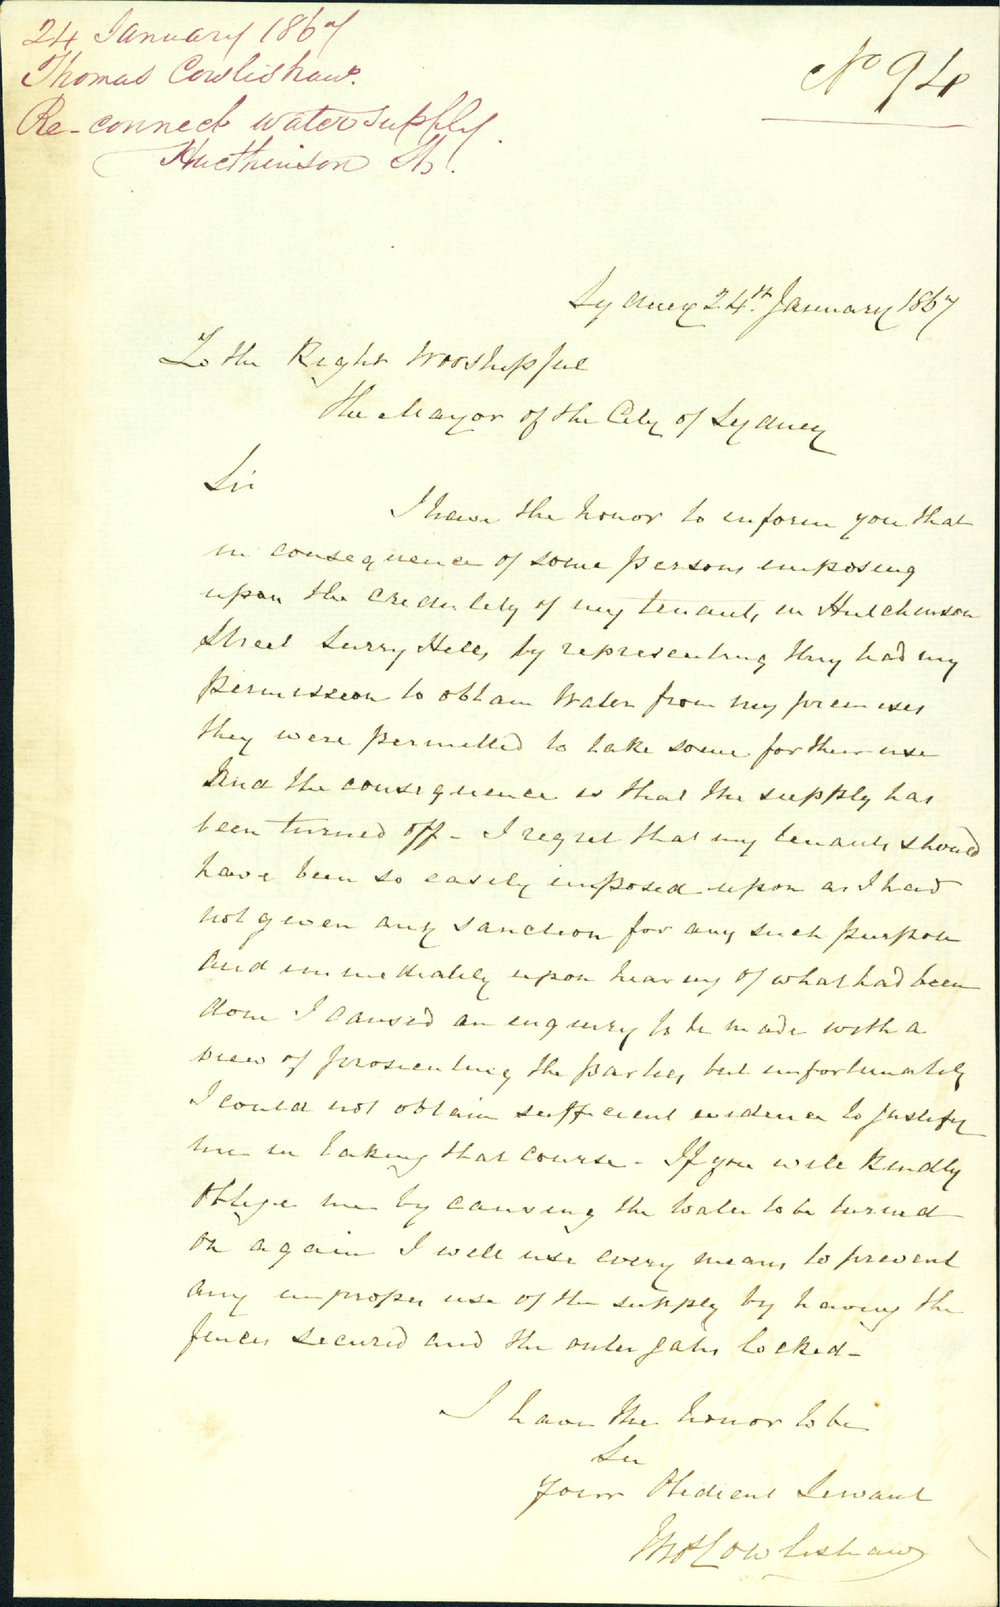 24 January 1867
Thomas Cowlishaw.
Re-connect water supply.
Hutchinson St.
No 94
Sydney 24th January 1867
To the Right Worshipful
the Mayor of the City of Sydney
Sir
I have the honor to inform you that
in consequence of some persons imposing
upon the credulity of my tenants in Hutchinson
Street Surry Hills by representing they had my
permission to obtain Water from my premises
they were permitted to take some for their use
And the consequence is that the supply has
been turned off - I regret that my tenants should
have been so easily imposed upon as I had
not given any sanction for any such purpose
and immediately upon hearing of what had been
done I caused an enquiry to be made with a
view of prosecuting the parties but unfortunately
I could not obtain sufficient evidence to justify
me in taking that course - If you will kindly
oblige me by causing the Water to be turned
on again I will use every means to prevent
any improper use of the supply by having the
fences secured and the outer gates locked -
I have the honor to be
Sir
Your Obedient Servant
Thos Cowlishaw